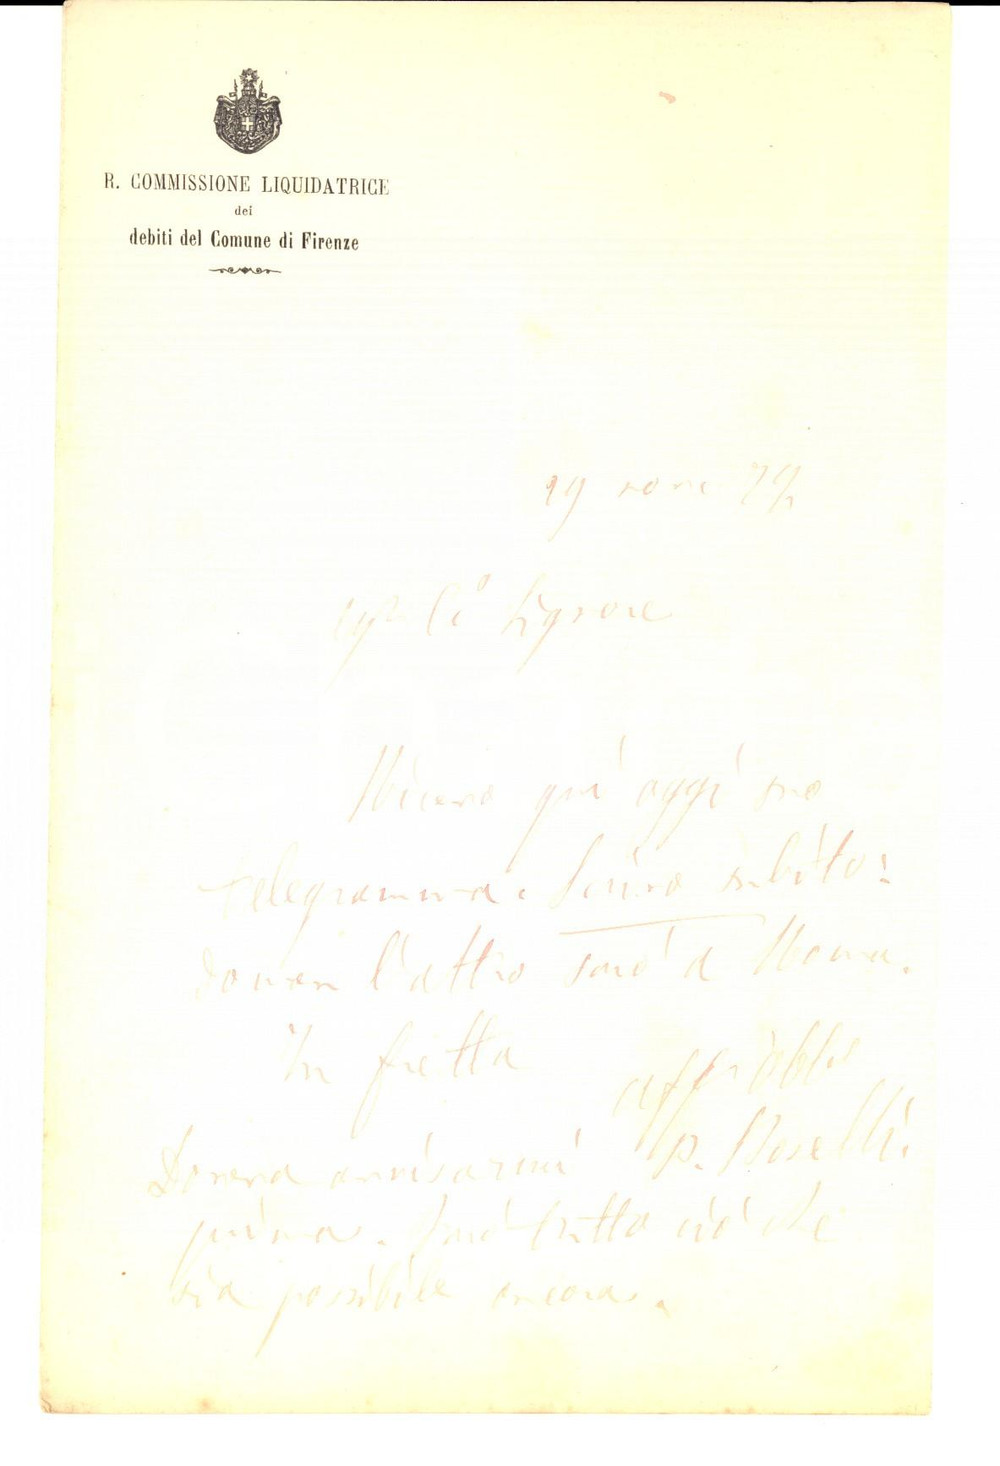 R. COMMISSIONE LIQUIDATRICE
dei
debiti del Comune di Firenze
19 79
Signore
Ricevo qui oggi suo
telegramma. Scrivo subito:
doman l'altro sarò a Roma.
In fretta
P. Boselli.
Doveva avvisarmi
prima. Farò tutto ciò che
sia possibile ancora.